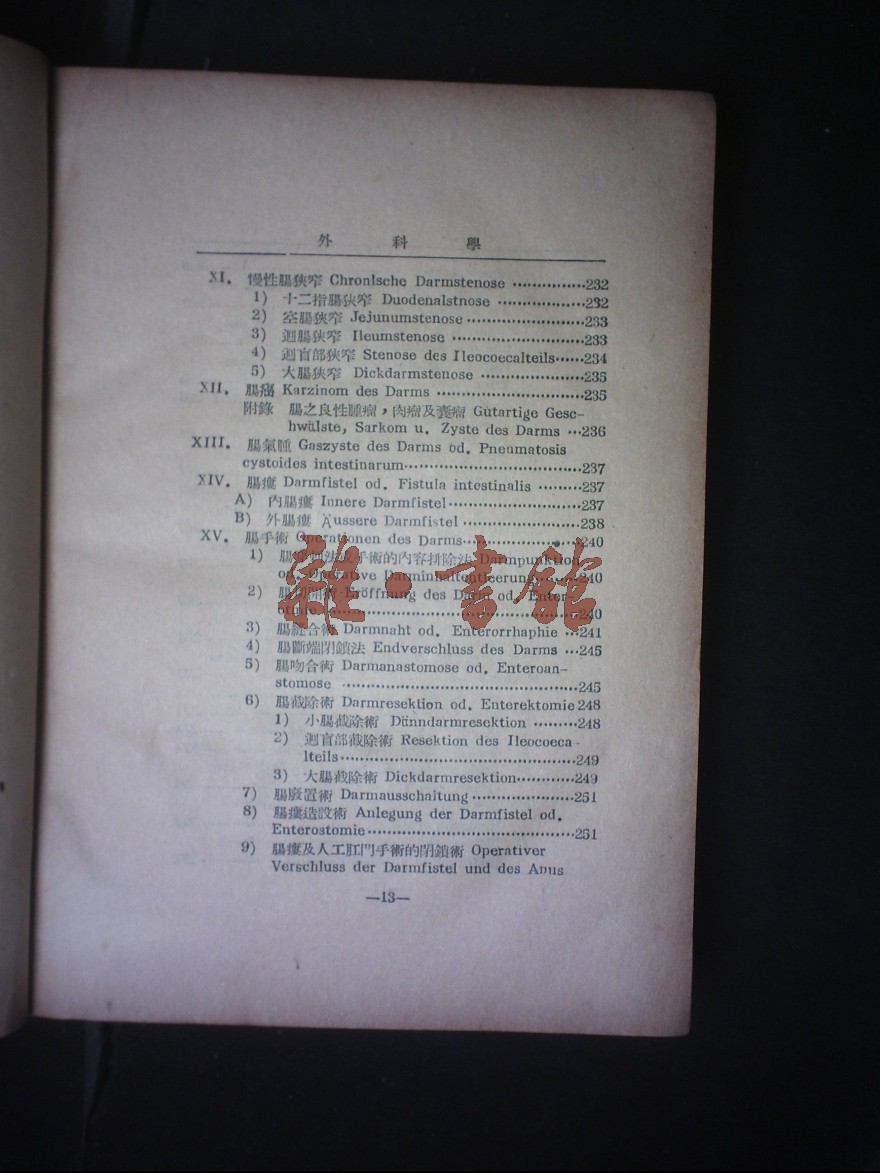 外 科 學
XI. 慢性腸狹窄 Chronische Darmstenose ···············232
1) 十二指腸狹窄 Duodenalstnose ·················232
2) 空腸狹窄 Jejunumstenose ·····················233
3) 迴腸狹窄 Ileumstenose ························233
4) 迴盲部狹窄 Stenose des Ileocoecalteils······234
5) 大腸狹窄 Dickdarmstenose ···················235
XII. 腸癌 Karzinom des Darms ·························235
附錄 腸之良性腫瘤，肉瘤及囊瘤 Gutartige Gesc-
hwülste, Sarkom u. Zyste des Darms ···236
XIII. 腸氣腫 Gaszyste des Darms od. Pneumatosis
cystoides intestinarum·································237
XIV. 腸瘻 Darmfistel od. Fistula intestinalis ········237
A) 內腸瘻 Innere Darmfistel························237
B) 外腸瘻 Äussere Darmfistel ·····················238
XV. 腸手術 Operationen des Darms·····················240
1) 手術的內容排除法 Darmpunktion
od. Operative Darminhaltentleerung········240
2) Eröffnung des Darm od. Enter-
otmie·················································240
3) 腸縫合術 Darmnaht od. Enterorrhaphie ···241
4) 腸斷端閉鎖法 Endverschluss des Darms ···245
5) 腸吻合術 Darmanastomose od. Enteroan-
stomose ············································245
6) 腸截除術 Darmresektion od. Enterektomie 248
1) 小腸截除術 Dünndarmresektion ·········248
2) 迴盲部截除術 Resektion des Ileocoeca-
lteils·············································249
3) 大腸截除術 Dickdarmresektion············249
7) 腸廢置術 Darmausschaltung···················251
8) 腸瘻造設術 Anlegung der Darmfistel od.
Enterostomie·······································251
9) 腸瘻及人工肛門手術的閉鎖術 Operativer
Verschluss der Darmfistel und des Anus
—13—
雜·書館